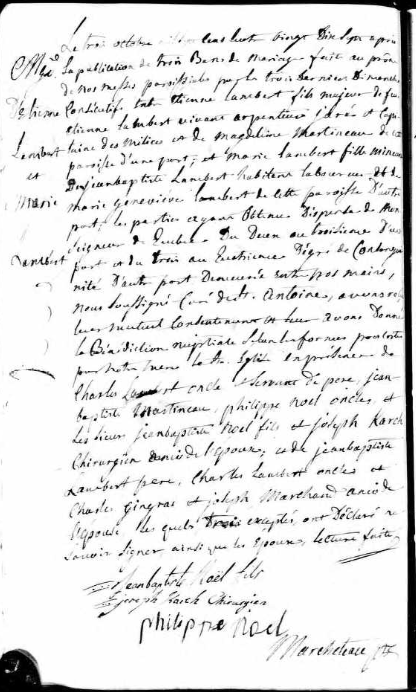 Le trois octobre mil sept cens quatre vingt Dix Sept après
M Ge la publication de trois Bans de Mariage faite au prône
de nos messes paroissiales par les trois derniers Dimanches
D'Etienne Consécutifs, entre Etienne Lambert fils majeur de feu
Etienne Lambert vivant arpenteur juré et Capi-
Lambert taine des milices et de Magdeleine Martineau de cette
et paroisse d'une part; et Marie Lambert fille mineure
de jeanbaptiste Lambert habitant laboureur et de
Marie marie geneviève Lambert de cette paroisse D'autre
part, les parties ayant obtenu Dispense de Mon
Seigneur de Quebec Du Deux au troisième D'une
Lambert part et du trois au quatrième Dégré de Consangui-
nité D'autre part Demeurée entre Nos mains,
Nous Soussigné Curé de St. Antoine, avons reçu
leur mutuel Consentement et leur avons Donné
la Bénédiction nuptiale Selon la forme prescrite
par notre mère la Ste. Eglise en présence de
Charles Lambert oncle et Servant De père, jean-
baptiste Martineau, philippe Noel oncles, et
les Sieurs jeanbaptiste Noel fils et joseph Karch
Chirurgien amis de l'époux, et de jeanbaptiste
Lambert père, Charles Lambert oncles et
Charles Gingras et joseph Marchand amis de
l'épouse les quels trois exceptés, ont Déclaré ne
Savoir Signer ainsi que les Epoux, lecture faite
Jeanbaptiste Noël fils
joseph Karch Chirurgien
philippe Noel
Marcheteau ptr